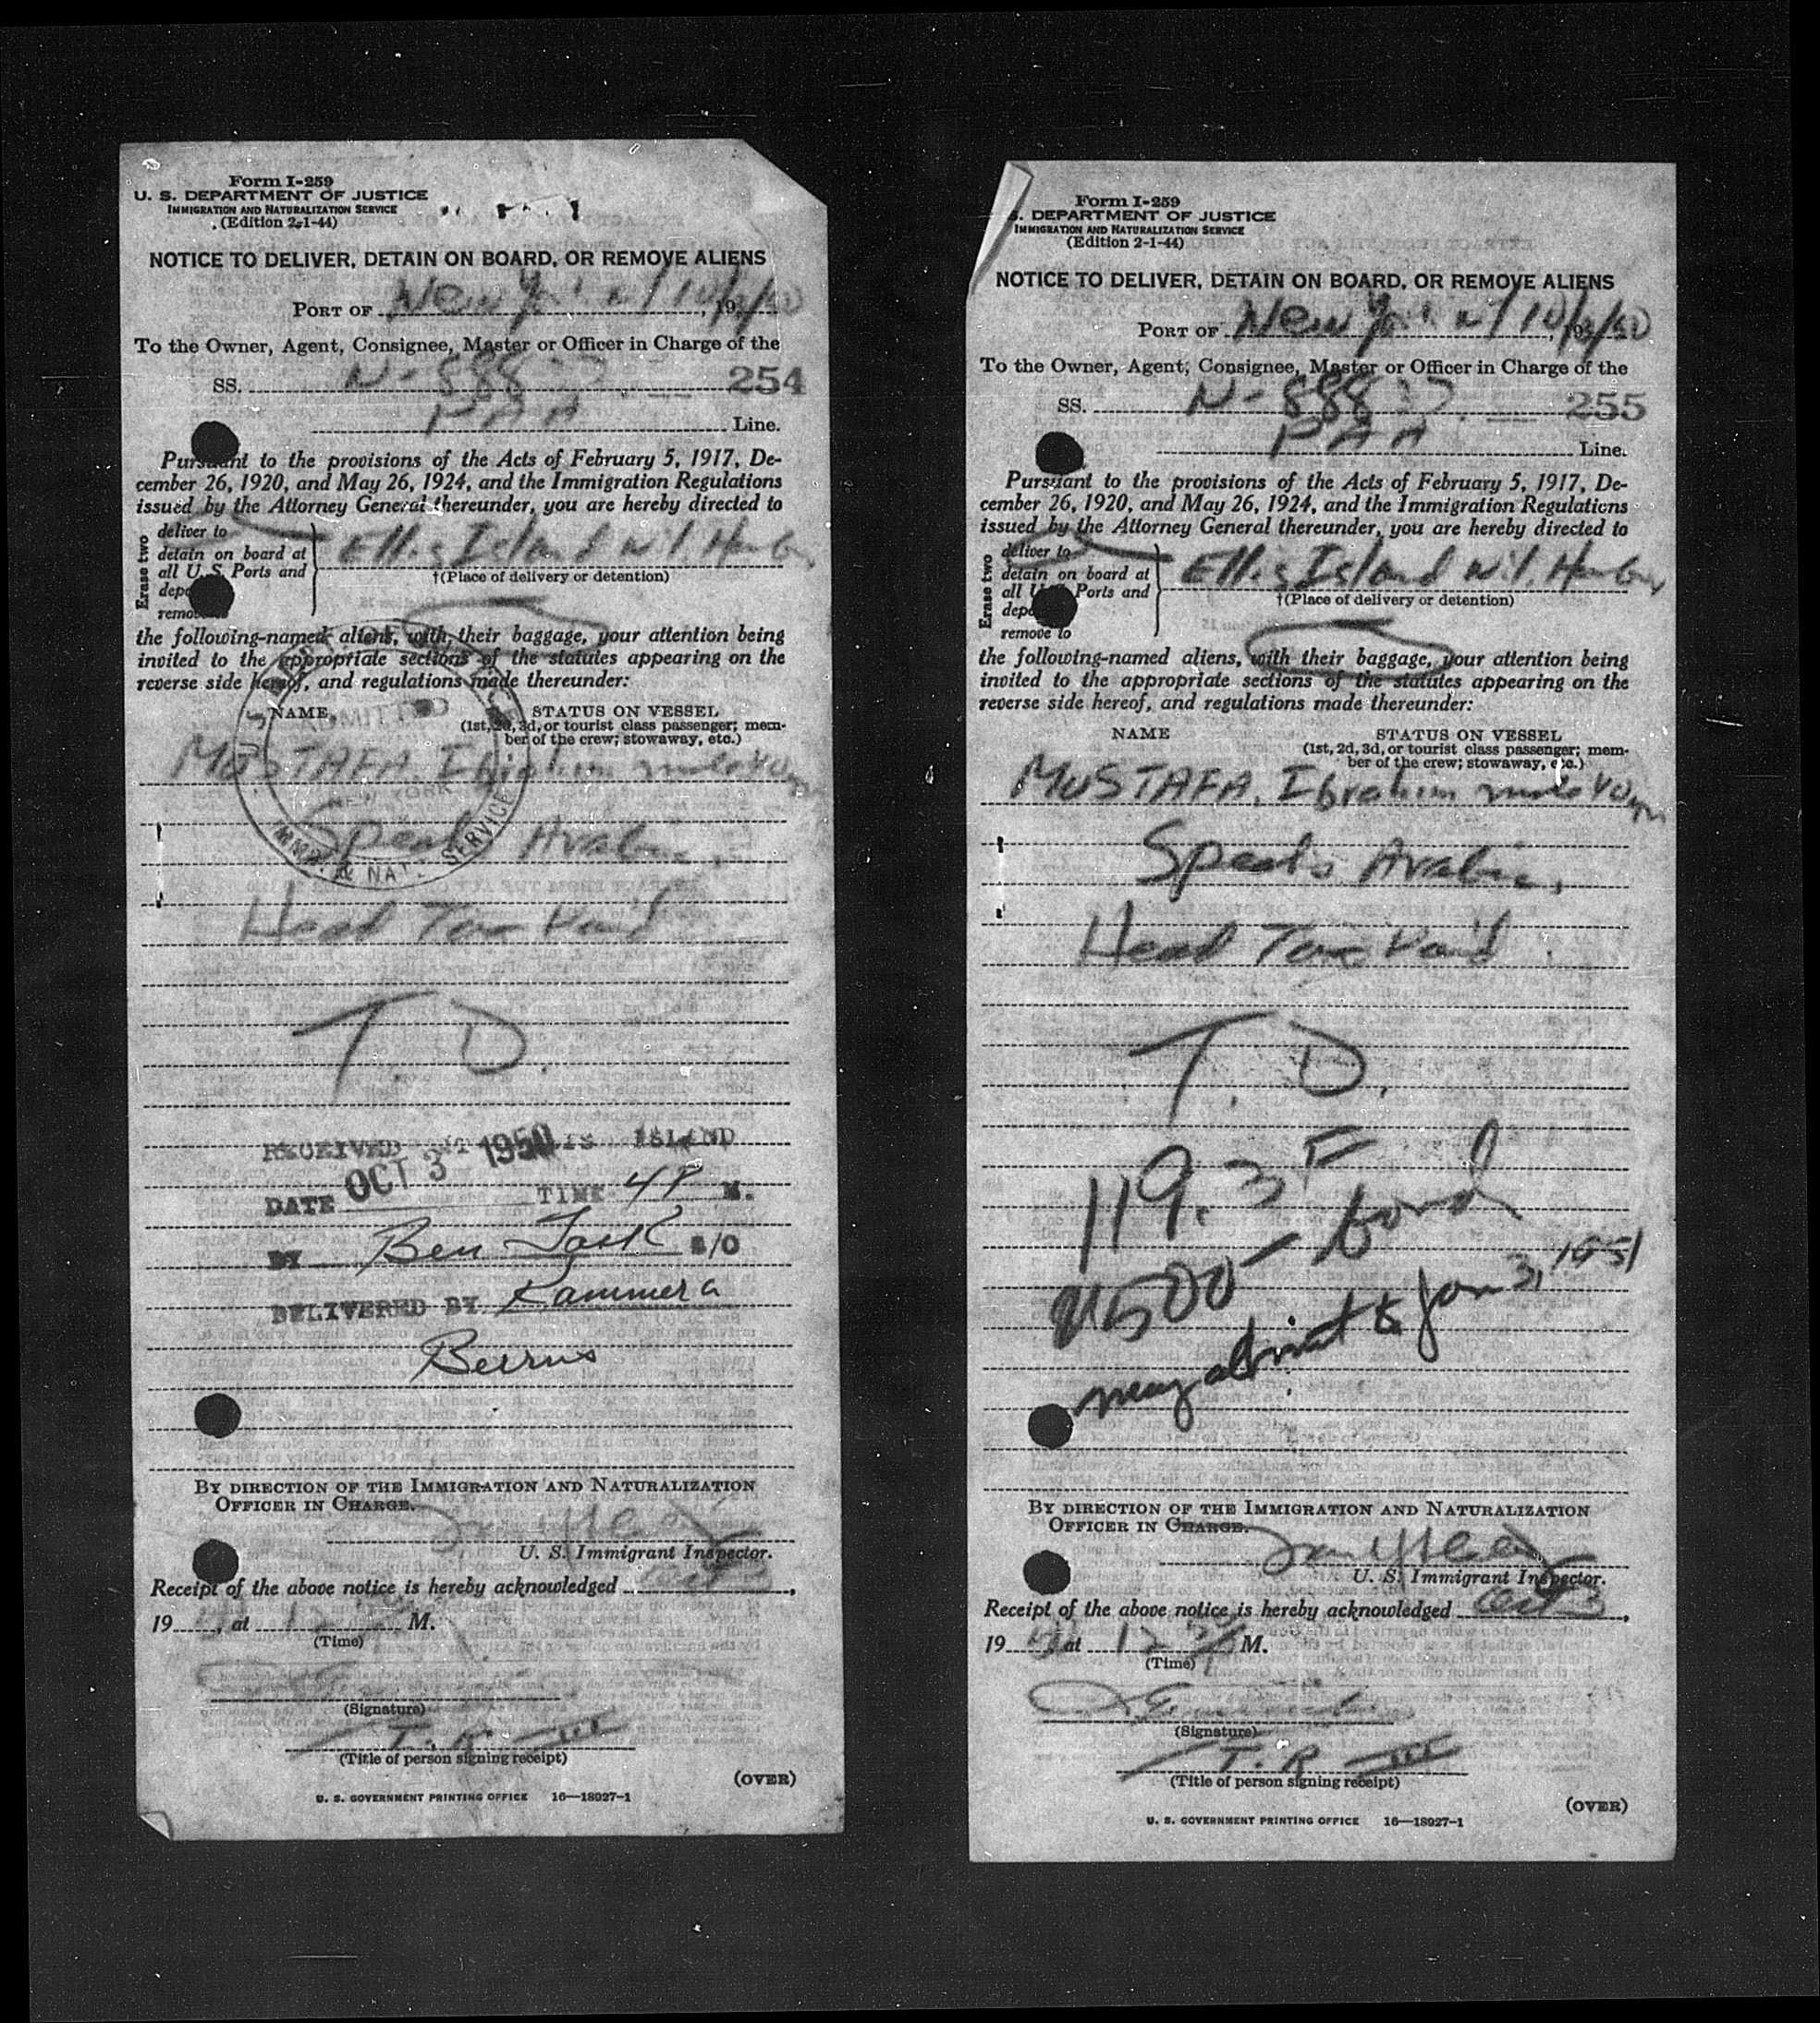 Form I-259
U. S. DEPARTMENT OF JUSTICE
IMMIGRATION AND NATURALIZATION SERVICE
(Edition 2-1-44)
NOTICE TO DELIVER, DETAIN ON BOARD, OR REMOVE ALIENS
PORT OF New York 10/3/50, 19
To the Owner, Agent, Consignee, Master or Officer in Charge of the
SS. N-888 254
PAA Line.
Pursuant to the provisions of the Acts of February 5, 1917, De-
cember 26, 1920, and May 26, 1924, and the Immigration Regulations
issued by the Attorney General thereunder, you are hereby directed to
Erase two
deliver to
detain on board at
all U. S. Ports and
remo
Ellis Island N.Y. Harbor
†(Place of delivery or detention)
the following-named aliens, with their baggage, your attention being
invited to the appropriate sections of the statutes appearing on the
reverse side hereof, and regulations made thereunder:
NAME STATUS ON VESSEL
(1st, 2d, 3d, or tourist class passenger; mem-
ber of the crew; stowaway, etc.)
ADMITTED
NEW YORK
IMMI. & NAT. SERVICE
MUSTAFA, Ibrahim male
Speaks Arabic,
Head Tax Paid
T. D.
RECEIVED AT ELLIS ISLAND
DATE OCT 3 1950 TIME 4 P M.
BY Ben S/O
DELIVERED BY
By direction of the Immigration and Naturalization
Officer in Charge.
U. S. Immigrant Inspector.
Receipt of the above notice is hereby acknowledged Oct 3,
19, at 12 M.
(Time)
(Signature)
T. R. III
(Title of person signing receipt)
(OVER)
U. S. GOVERNMENT PRINTING OFFICE 16—18027-1
Form I-259
. DEPARTMENT OF JUSTICE
IMMIGRATION AND NATURALIZATION SERVICE
(Edition 2-1-44)
NOTICE TO DELIVER, DETAIN ON BOARD, OR REMOVE ALIENS
PORT OF New York 10/3/50, 19
To the Owner, Agent, Consignee, Master or Officer in Charge of the
SS. N-888 255
PAA Line.
Pursuant to the provisions of the Acts of February 5, 1917, De-
cember 26, 1920, and May 26, 1924, and the Immigration Regulations
issued by the Attorney General thereunder, you are hereby directed to
Erase two
deliver to
detain on board at
all U. S. Ports and
remove to
Ellis Island N.Y. Harbor
†(Place of delivery or detention)
the following-named aliens, with their baggage, your attention being
invited to the appropriate sections of the statutes appearing on the
reverse side hereof, and regulations made thereunder:
NAME STATUS ON VESSEL
(1st, 2d, 3d, or tourist class passenger; mem-
ber of the crew; stowaway, etc.)
MUSTAFA, Ibrahim male
Speaks Arabic,
Head Tax Paid
T. D.
119.3 F
500 — bond
may admit to Jan 3, 1951
By direction of the Immigration and Naturalization
Officer in Charge.
U. S. Immigrant Inspector.
Receipt of the above notice is hereby acknowledged Oct 3,
19 50, at 12 30 M.
(Time)
(Signature)
T. R. III
(Title of person signing receipt)
(OVER)
U. S. GOVERNMENT PRINTING OFFICE 16—18927-1